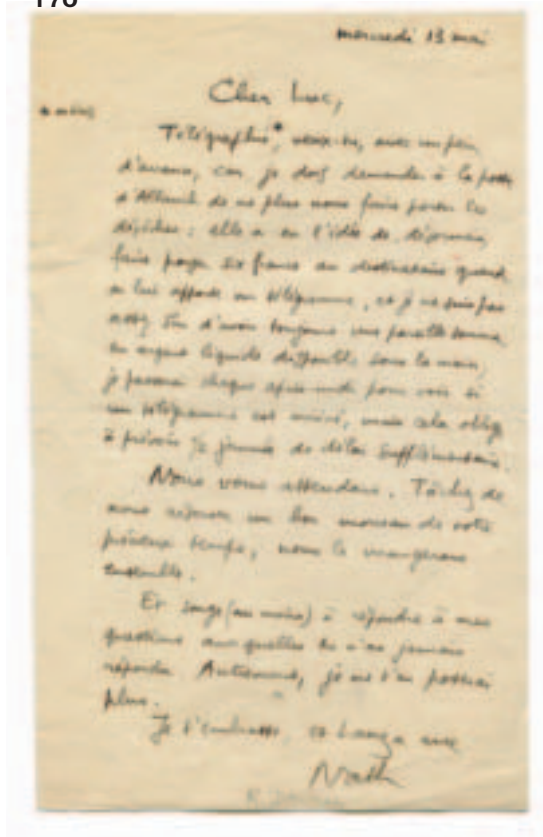 176
mercredi 13 mai
Cher Luc,
Télégraphie*, veux-tu, avec un peu
d'avance, car je dois demander à la poste
d'Auteuil de ne plus nous faire porter les
dépêches : elle a eu l'idée de, désormais,
faire payer six francs au destinataire quand
on lui apporte un télégramme, et je ne suis pas
assez sûr d'avoir toujours une pareille somme
en argent liquide disponible sous la main,
je passerai chaque après-midi pour voir si
un télégramme est arrivé, mais cela oblige
à prévoir journée de délai supplémentaire.
Nous vous attendons. Tâchez de
nous réserver un bon morceau de votre
précieux temps, nous le mangerons
ensemble.
Et songe (au moins) à répondre à mes
questions auxquelles tu n'as jamais
répondu. Autrement, je ne t'en poserai
plus.
Je t'embrasse, et avec